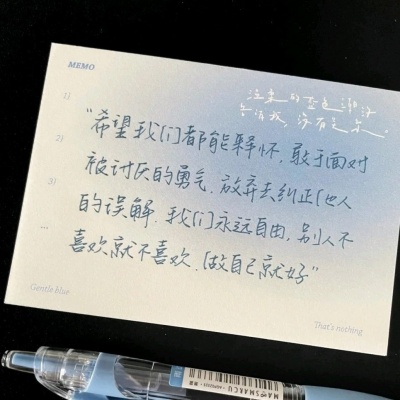 MEMO
1)
"希望我们都能释怀,敢于面对
2)
被讨厌的勇气,放弃去纠正他人
3)
的误解,我们永远自由,别人不
...
喜欢就不喜欢,做自己就好"
Gentle blue
That's nothing